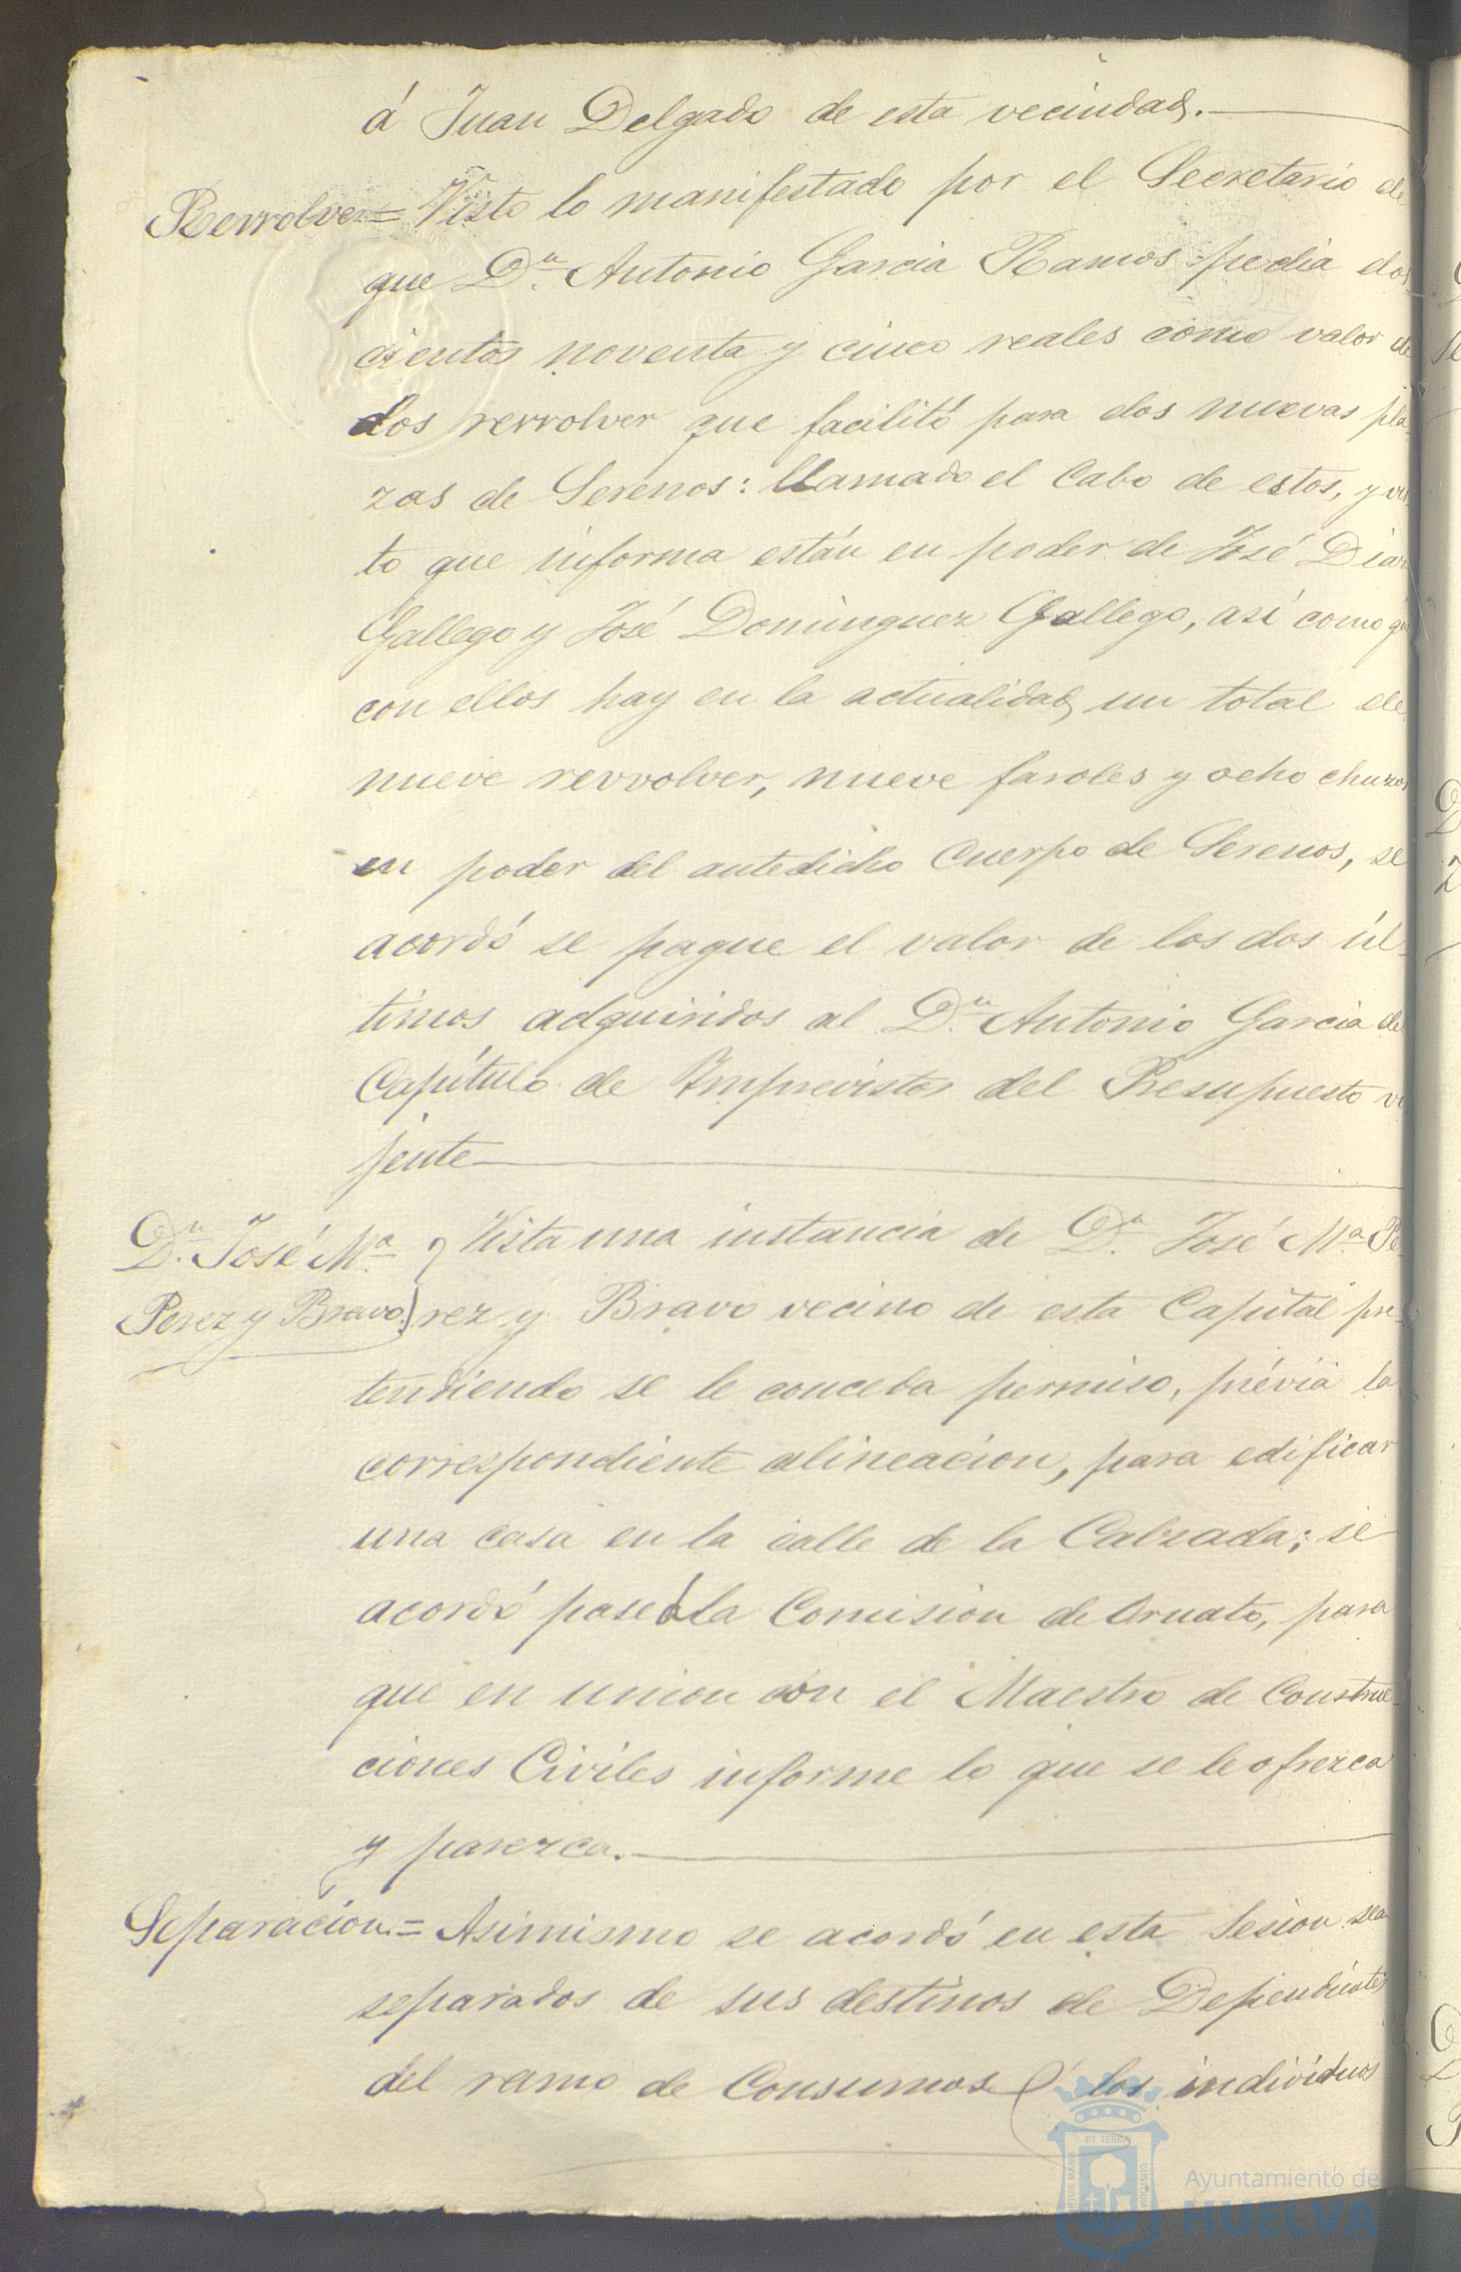 á Juan Delgado de esta vecindad.
Revrolver= Visto lo manifestado por el Secretario de
que Dn. Antonio Garcia Ramos pedia dos
cientos noventa y cinco reales como valor de
dos revrolver que facilitó para dos nuevas pla-
zas de Serenos: llamado el Cabo de estos, y vis
to que informa están en poder de José Diaz
Gallego y José Dominguez Gallego, así como qe
con ellos hay en la actualidad un total de
nueve revvolver, nueve faroles y ocho chuzos
en poder del antedicho Cuerpo de Serenos, se
acordó se pague el valor de los dos úl-
timos adquiridos al Dn. Antonio Garcia del
Capítulo de Imprevistos del Presupuesto vi
jente
Dn. José Ma. Vista una instancia de Dn. José Ma. Pe-
Perez y Bravo.) rez y Bravo vecino de esta Capital pre-
tendiendo se le conceda permiso, prévia la
correspondiente alineacion, para edificar
una casa en la calle de la Calzada; se
acordó pase á la Comision de Ornato, para
que en union con el Maestro de Construc-
ciones Civiles informe lo que se le ofrezca
y parezca.
Separacion= Asimismo se acordó en esta Sesion sean
separados de sus destinos de Dependientes
del ramo de Consumos á los individuos
Ayuntamiento de
HUELVA